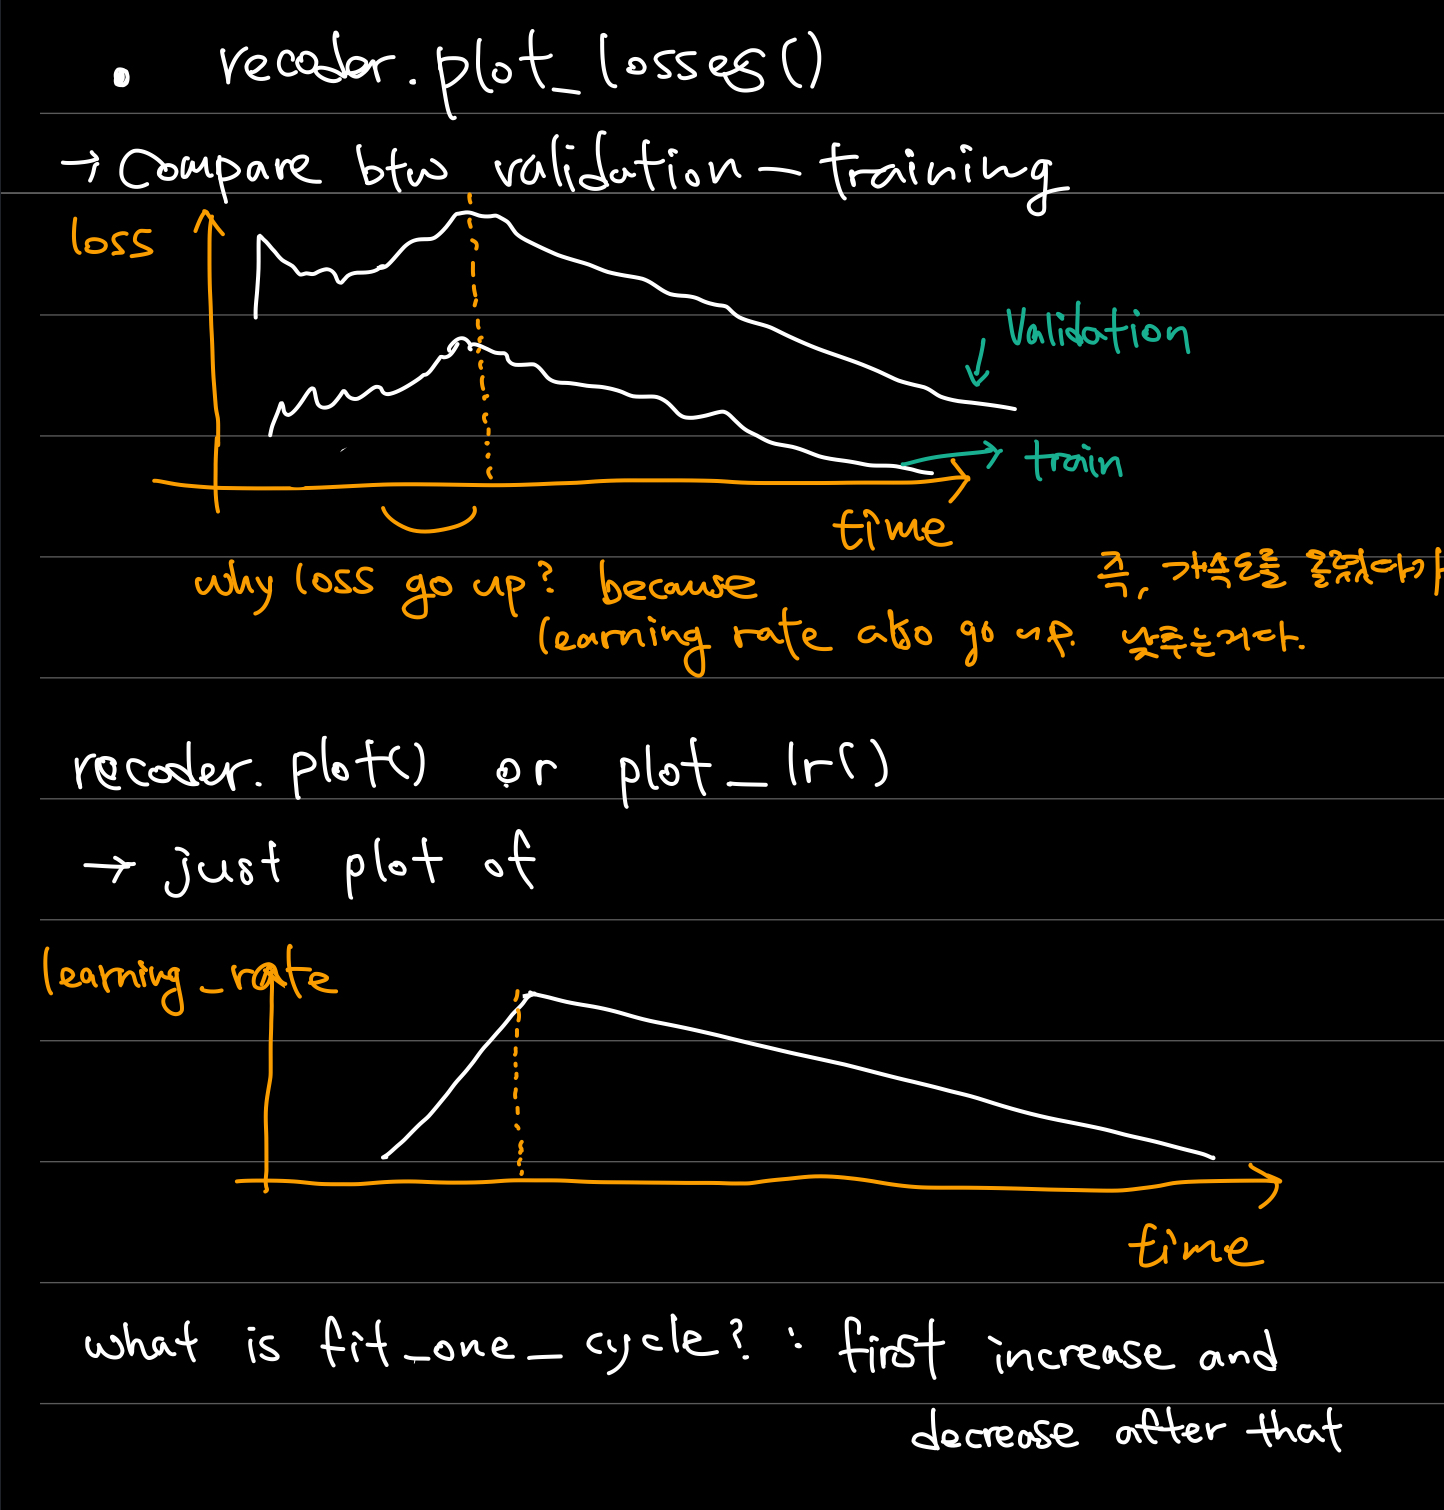 • recoder.plot_losses()
→ Compare btw validation – training
loss
Validation
train
time
why loss go up? because
learning rate also go up.
즉, 가속도를 올렸다가
낮추는거다.
recoder. plot() or plot_lr()
→ just plot of
learning_rate
time
what is fit_one_cycle? : first increase and
decrease after that